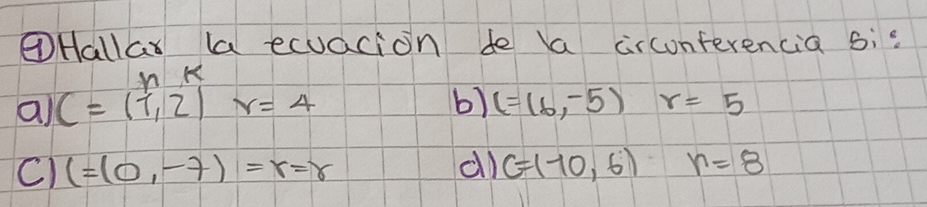 ① Hallar la ecuación de la circunferencia si:
h K
a) C = (1, 2) r = 4 b) C = (6, -5) r = 5
c) C = (0, -7) = r = r d) C = (-10, 6) r = 8